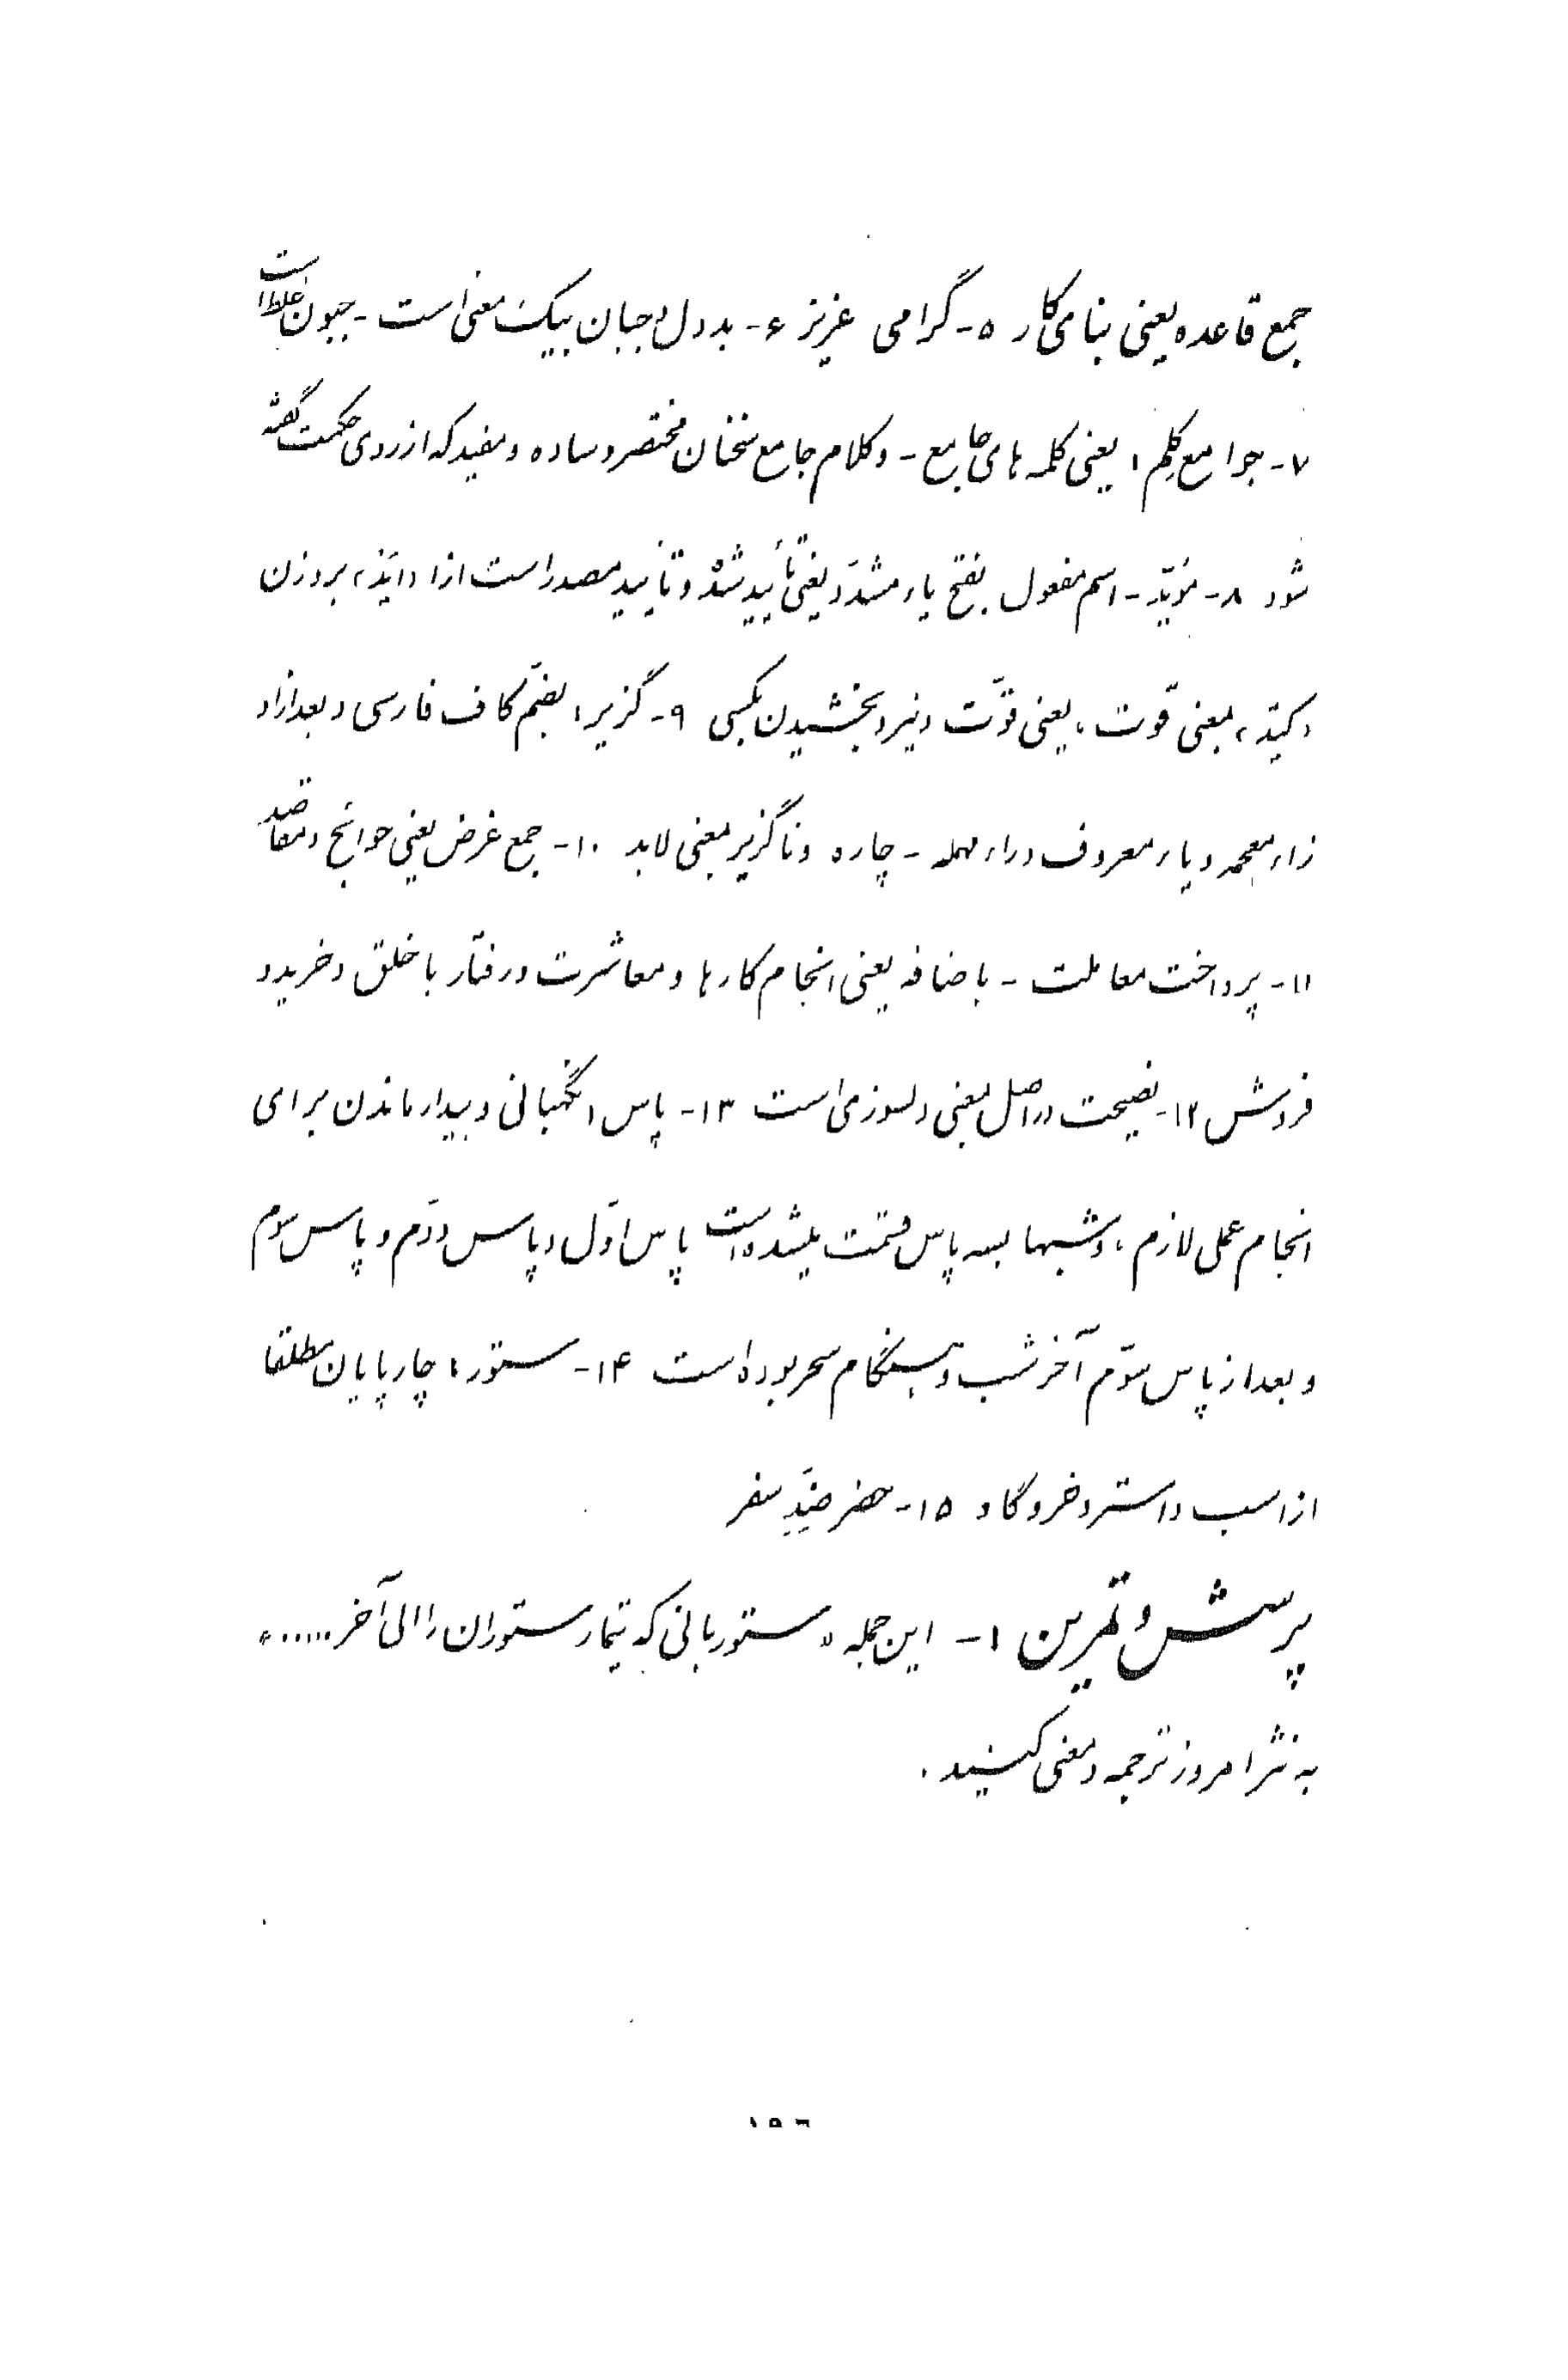 جمع قاعده یعنی بنای کار ۵- گرامی عزیز ۶- بددل و جبان بیک معنی است - جبون غلط است
۷- جوامع کلم: یعنی کلمه های جامع - و کلام جامع سخنان مختصر و ساده و مفید که از روی حکمت گفته
شود ۸- مؤیّد - اسم مفعول بفتح یاء مشدّد یعنی تأیید شده و تأیید مصدر است از «اید» بروزن
«کید» بمعنی قوت، یعنی قوّت و نیرو بخشیدن بکسی ۹- گزیر: بضمّ کاف فارسی و بعد از او
زاء معجمه و یاء معروف و راء مهمله - چاره و ناگزیر بمعنی لابد ۱۰- جمع غرض یعنی حوائج و مقاصد
۱۱- پرداخت معاملت - باضافه یعنی انجام کارها و معاشرت و رفتار با خلق و خرید و
فروش ۱۲- نصیحت در اصل بمعنی دلسوزی است ۱۳- پاس: نگهبانی و بیدار ماندن برای
انجام عمل لازم، و شبها بسه پاس قسمت میشده است پاس اوّل و پاس دوّم و پاس سوم
و بعد از پاس سوّم آخر شب و هنگام سحر بوده است ۱۴- ستور: چارپایان مطلقا
از اسب و استر و خر و گاو ۱۵- حضر ضدّ سفر
پرسش و تمرین ۱- این جمله «ستوربانی که تیمار ستوران را الی آخر ......»
به نثر امروز ترجمه و معنی کنید.
۱۵۶